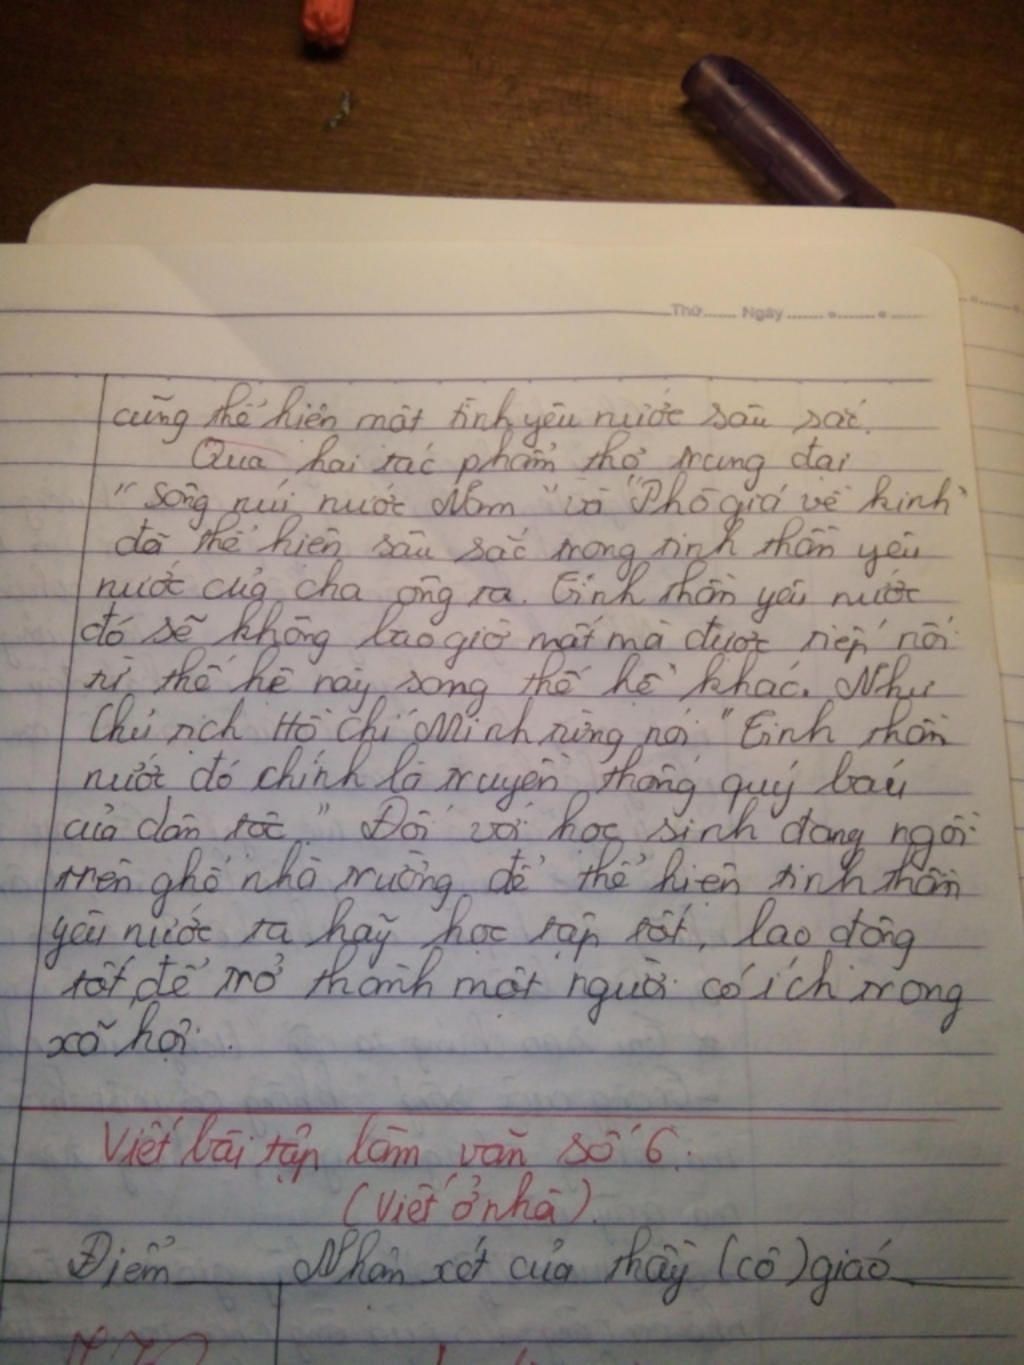 Thứ...... Ngày.......
cũng thể hiện một tình yêu nước sâu sắc.
Qua hai tác phẩm thơ trung đại
"Sông núi nước Nam" và "Phò giá về kinh"
đã thể hiện sâu sắc trong tinh thần yêu
nước của cha ông ta. Tinh thần yêu nước
đó sẽ không bao giờ mất mà được tiếp nối
từ thế hệ này sang thế hệ khác. Như
Chủ tịch Hồ Chí Minh từng nói "Tinh thần
nước đó chính là truyền thống quý báu
của dân tộc." Đối với học sinh đang ngồi
trên ghế nhà trường, để thể hiện tinh thần
yêu nước ta hãy học tập tốt, lao động
tốt, để trở thành một người có ích trong
xã hội.
Viết bài tập làm văn số 6.
(Viết ở nhà).
Điểm Nhận xét của thầy (cô) giáo